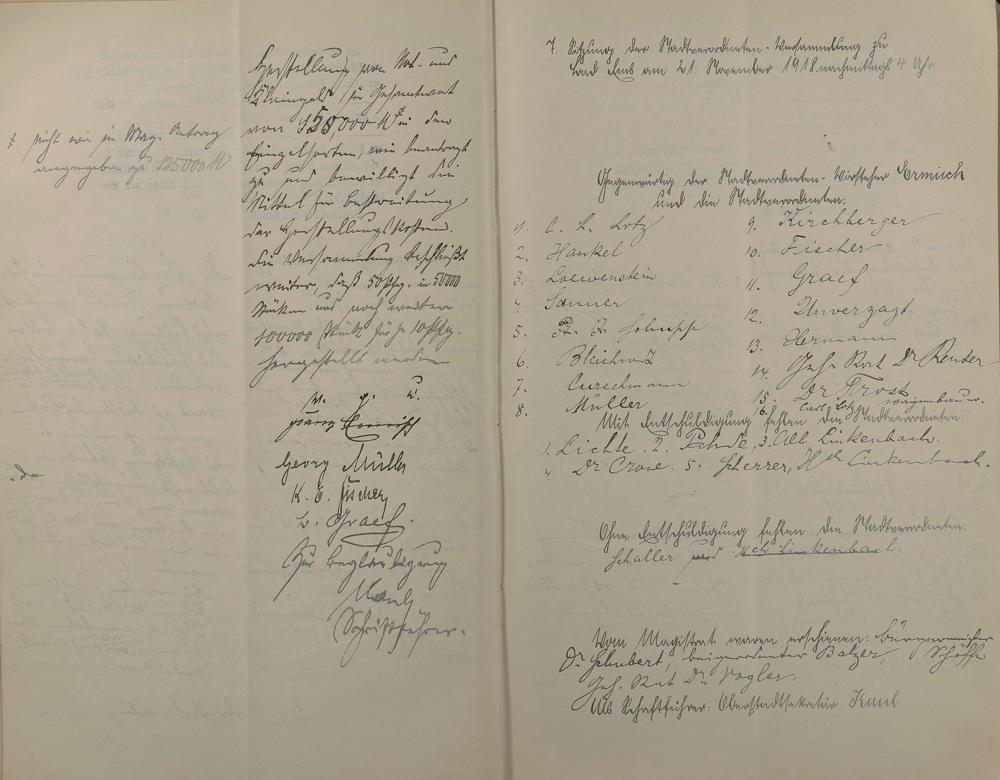 Herstellung von Not- und
Kleingeld im Gesamtwert
von 150000 M in den
Einzelsorten, wie beantragt
zu und bewilligt die
Mittel für Bestreitung
der Herstellungskosten.
Die Versammlung beschließt
weiter, daß 50 Pfg. in 50000
Stücken und noch weitere
100000 Stück für je 10 Pfg.
hergestellt werden
nicht wie im Mag. Antrag
angegeben zu 125000 M
v. g. u.
Ermisch
Georg Müller
K. E. Fischer
L. Graef.
Zur Beglaubigung
Kaul
Schriftführer.
7. Sitzung der Stadtverordneten-Versammlung zu
Bad Ems am 21. November 1918 nachmittags 4 Uhr
Gegenwärtig der Stadtverordneten-Vorsteher Ermisch
und die Stadtverordneten:
1. C. L. Lotz
2. Hankel
3. Loewenstein
4. Sauner
5. Schupp
6. Bleichrodt
7. Curschmann
8. Müller
9. Kirchberger
10. Fischer
11. Graef
12. Unverzagt
13. Hermann
14. Geh. Rat Dr Reuter
15. Dr Frost
16. Carl Lotz, Wagenbauer.
Mit Entschuldigung fehlen die Stadtverordneten:
1. Lichte. 2. 3. Alb. Linkenbach.
4. Dr Crone. 5. Scherrer, Hch Linkenbach.
Ohne Entschuldigung fehlen die Stadtverordneten:
Schaller und Hch Linkenbach.
Vom Magistrat waren erschienen: Bürgermeister
Dr Schubert, Beigeordneter Balzer, Schöffe
Geh. Rat Dr Vogler.
Als Schriftführer: Oberstadtsekretär Kaul